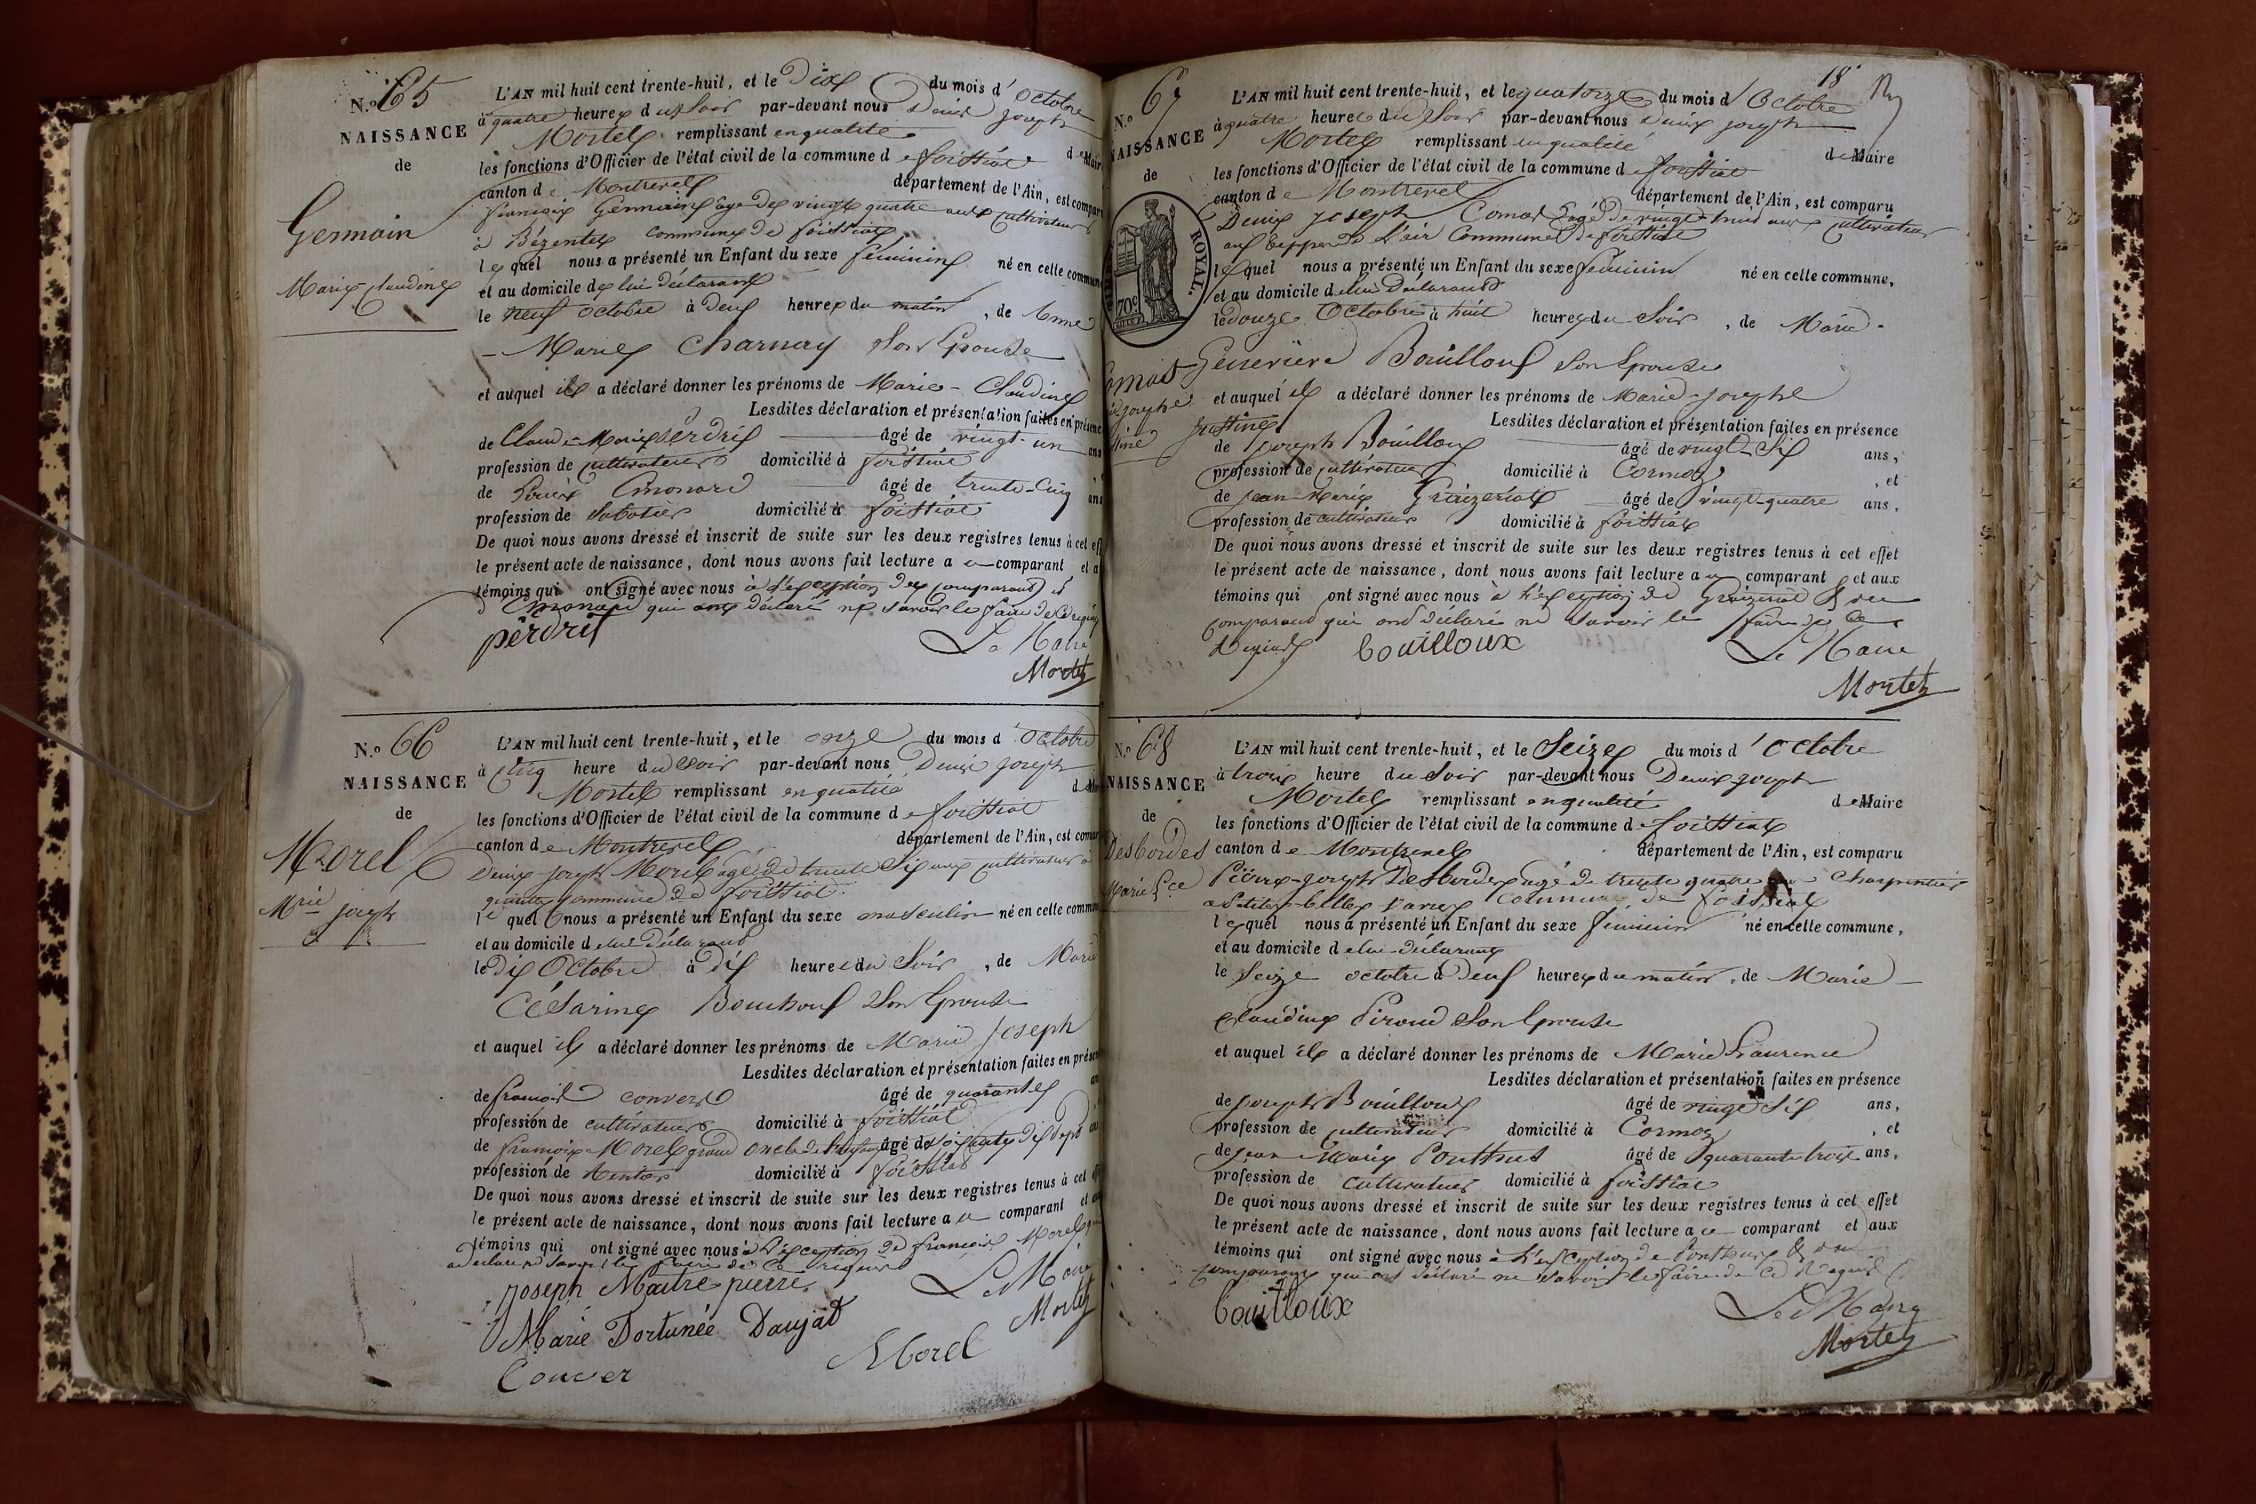 N.º 65
NAISSANCE
de
Germain
Marie claudine
L'AN mil huit cent trente-huit, et le Dix du mois d'Octobre
à quatre heures du soir par-devant nous Denis joseph
Mortel remplissant en qualité de Maire
les fonctions d'Officier de l'état civil de la commune de foissiat
canton de Montrevel département de l'Ain, est comparu
françois Germain âgé de vingt quatre ans cultivateur
à Bézentet commune de foissiat
lequel nous a présenté un Enfant du sexe féminin né en cette commune
et au domicile de lui déclarant
le neuf octobre à deux heures du matin, de Anne
Marie Charnay son Epouse
et auquel il a déclaré donner les prénoms de Marie-Claudine
Lesdites déclaration et présentation faites en présence
de Claude Marie Perdrix âgé de vingt-un ans
profession de cultivateur domicilié à foissiat
de Louis Emonard âgé de trente-cinq ans
profession de Sabotier domicilié à foissiat
De quoi nous avons dressé et inscrit de suite sur les deux registres tenus à cet eff
le présent acte de naissance, dont nous avons fait lecture au comparant et a
témoins qui ont signé avec nous à l'exception du comparant et
d'Emonard qui ont déclaré ne savoir le faire de ce requis
perdrix Le Maire
Mortel
N.º 66
NAISSANCE
de
Morel
Mrie joseph
L'AN mil huit cent trente-huit, et le onze du mois d'Octobre
à cinq heure du soir par-devant nous Denis joseph
Mortel remplissant en qualité de Maire
les fonctions d'Officier de l'état civil de la commune de foissiat
canton de Montrevel département de l'Ain, est compar
Denis-joseph Morel âgé de trente six ans cultivateur à
commune de foissiat
le quel nous a présenté un Enfant du sexe masculin né en cette commu
et au domicile de lui déclarant
le dix Octobre à dix heures du Soir, de Marie
Césarine Bouchoux son Epouse
et auquel il a déclaré donner les prénoms de Marie Joseph
Lesdites déclaration et présentation faites en présen
de françois convert âgé de quarante
profession de cultivateur domicilié à foissiat
de françois Morel grand oncle de âgé de soixante dix sept
profession de Rentier domicilié à foissiat
De quoi nous avons dressé et inscrit de suite sur les deux registres tenus à cet eff
le présent acte de naissance, dont nous avons fait lecture au comparant et
témoins qui ont signé avec nous à l'exception de françois Morel qui
a déclaré ne savoir le faire de ce requis
joseph Maitre pierre Le Maire
Mortel
Marie Fortunée Daujat
Conver Morel
18
N.º 67
NAISSANCE
de
ROYAL.
70c
L'AN mil huit cent trente-huit, et le quatorze du mois d'Octobre
à quatre heures du Soir par-devant nous Denis joseph
Mortel remplissant en qualité de Maire
les fonctions d'Officier de l'état civil de la commune de foissiat
canton de Montrevel département de l'Ain, est comparu
Denis joseph Comas âgé de vingt-huit ans cultivateur
commune de foissiat
lequel nous a présenté un Enfant du sexe féminin né en cette commune,
et au domicile de lui déclarant
le douze Octobre à huit heures du Soir, de Marie
Genevieve Bouilloux son Epouse
et auquel il a déclaré donner les prénoms de Marie-josephe
justine Lesdites déclaration et présentation faites en présence
de joseph Bouilloux âgé de vingt-Six ans,
profession de cultivateur domicilié à Cormoz, et
de jean-Marie âgé de vingt-quatre ans,
profession de cultivateur domicilié à foissiat
De quoi nous avons dressé et inscrit de suite sur les deux registres tenus à cet effet
le présent acte de naissance, dont nous avons fait lecture au comparant et aux
témoins qui ont signé avec nous à l'exception de & du
comparant qui ont déclaré ne savoir le faire de ce
Requis bouilloux Le Maire
Mortel
N.º 68
NAISSANCE
de
Desbordes
Marie Lce
L'AN mil huit cent trente-huit, et le Seize du mois d'Octobre
à trois heure du Soir par-devant nous Denis-joseph
Mortel remplissant en qualité de Maire
les fonctions d'Officier de l'état civil de la commune de foissiat
canton de Montrevel département de l'Ain, est comparu
Pierre-joseph Desbordes âgé de trente quatre ans Charpentier
commune de foissiat
lequel nous a présenté un Enfant du sexe féminin né en cette commune,
et au domicile de lui-déclarant
le Seize octobre à deux heures du matin, de Marie
claudine Piroud son Epouse
et auquel il a déclaré donner les prénoms de Marie Laurence
Lesdites déclaration et présentation faites en présence
de joseph Bouilloux âgé de vingt Six ans,
profession de cultivateur domicilié à Cormoz, et
de jean Marie Ponthus âgé de quarante trois ans,
profession de cultivateur domicilié à foissiat
De quoi nous avons dressé et inscrit de suite sur les deux registres tenus à cet effet
le présent acte de naissance, dont nous avons fait lecture au comparant et aux
témoins qui ont signé avec nous à l'exception de Ponthus & du
comparant qui ont déclaré ne savoir le faire de ce Requis
bouilloux Le Maire
Mortel